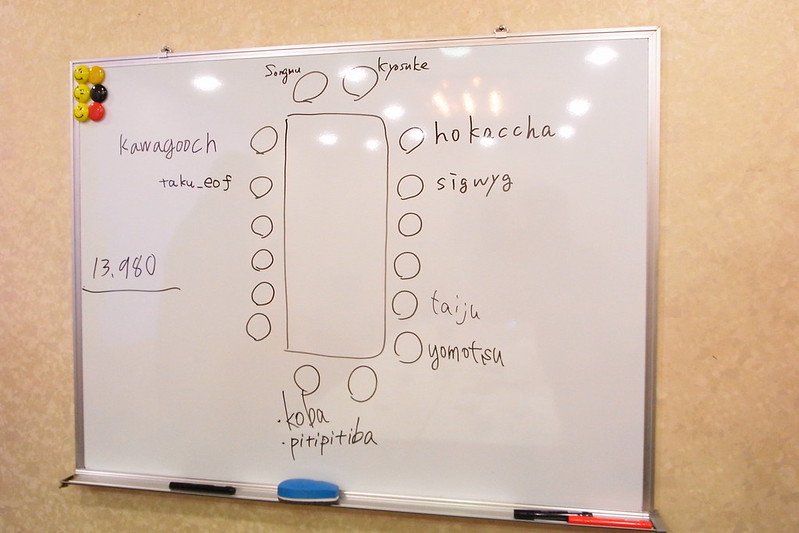 Songmu
Kyosuke
kawagooch
hokaccha
taku_eof
sigwyg
13.980
taiju
yomotsu
・koba
・pitipitiba